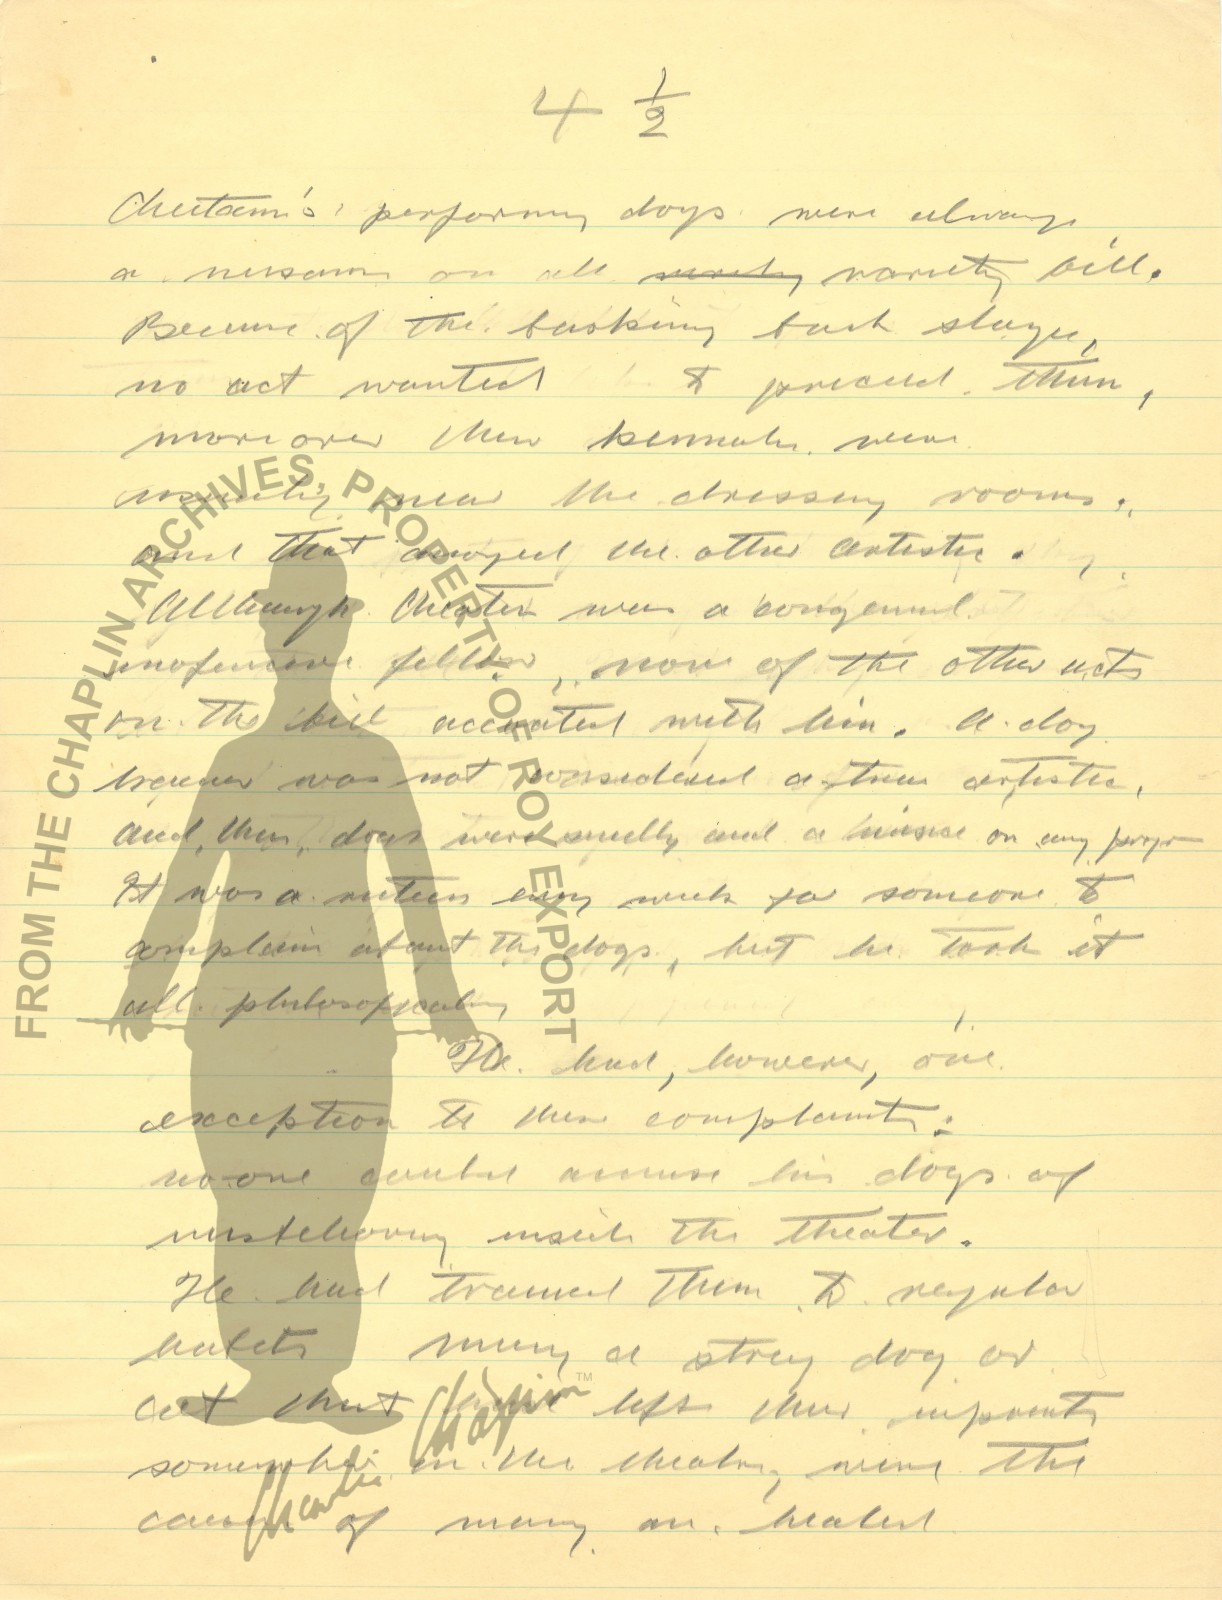 4 1/2
performing dogs were always
a on all variety bill.
Because of the back stage,
no act wanted to preceed them,
moreover their were
usually near the dressing rooms.,
and that annoyed the other artists.
Although was a congenial
fellow, none of the other acts
on the bill with him. A dog
was not considered a true artiste,
and, then, dogs were smelly and a on any
It was a every week for someone to
complain about the dogs, but he took it
all philosophically
He had, however, one
exception to these complaints:
no-one could his dogs of
inside the theater.
He had trained them to regular
habits many a stray dog or
cat that left their imprints
somewhere in the theatre, were the
cause of many an heated
FROM THE CHAPLIN ARCHIVES, PROPERTY OF ROY EXPORT
Charlie Chaplin™